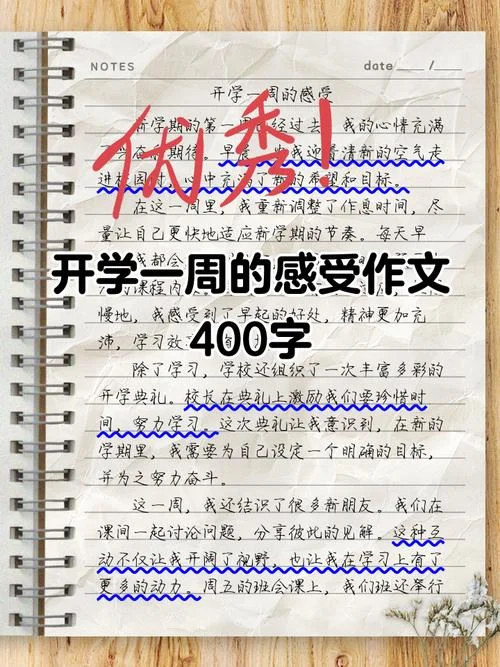 NOTES
date ____ / ____
开学一周的感受
新学期的第一周已经过去，我的心情充满
了兴奋和期待。早晨，当我迎着清新的空气走
进校园时，心中充满了新的希望和目标。
优秀！
在这一周里，我重新调整了作息时间，尽
量让自己更快地适应新学期的节奏。每天早
我都会
开学一周的感受作文
的课程内
400字
慢地，我感受到了早起的好处，精神更加充
沛，学习效
除了学习，学校还组织了一次丰富多彩的
开学典礼。校长在典礼上激励我们要珍惜时
间，努力学习。这次典礼让我意识到，在新的
学期里，我需要为自己设定一个明确的目标，
并为之努力奋斗。
这一周，我还结识了很多新朋友。我们在
课间一起讨论问题，分享彼此的见解。这种互
动不仅让我开阔了视野，也让我在学习上有了
更多的动力。周五的班会课上，我们班还举行